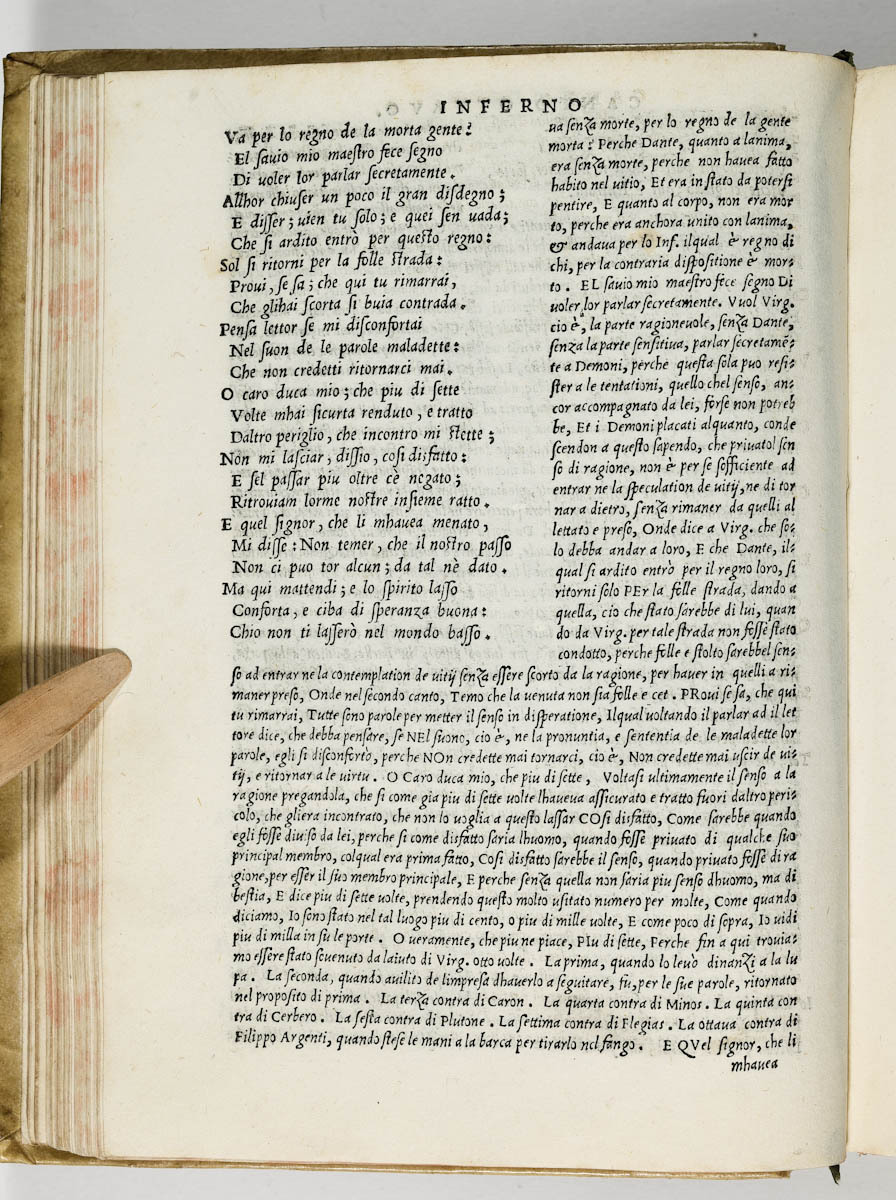 INFERNO
Va per lo regno de la morta gente?
El savio mio maestro fece segno
Di voler lor parlar secretamente.
Allhor chiuser un poco il gran disdegno;
E disser; vien tu solo; e quei sen vada;
Che si ardito entrò per questo regno:
Sol si ritorni per la folle strada:
Provi, se sa; che qui tu rimarrai,
Che glihai scorta si buia contrada.
Pensa lettor se mi disconfortai
Nel suon de le parole maladette:
Che non credetti ritornarci mai.
O caro duca mio; che piu di sette
Volte mhai sicurta renduto, e tratto
Daltro periglio, che incontro mi stette;
Non mi lasciar, dissio, cosi disfatto:
E sel passar piu oltre cè negato;
Ritroviam lorme nostre insieme ratto.
E quel signor, che li mhavea menato,
Mi disse: Non temer, che il nostro passo
Non ci puo tor alcun; da tal nè dato.
Ma qui mattendi; e lo spirito lasso
Conforta, e ciba di speranza buona:
Chio non ti lasserò nel mondo basso.
va senza morte, per lo regno de la gente
morta: Perche Dante, quanto a lanima,
era senza morte, perche non havea fatto
habito nel vitio, Et era in stato da potersi
pentire, E quanto al corpo, non era mor
to, perche era anchora unito con lanima,
& andava per lo Inf. ilqual è regno di
chi, per la contraria dispositione è mor-
to. EL savio mio maestro fece segno Di
voler lor parlar secretamente. Vuol Virg.
cio è, la parte ragionevole, senza Dante,
senza la parte sensitiva, parlar secretamē-
te a Demoni, perche questa sola puo resi-
ster a le tentationi, quello chel senso, an-
cor accompagnato da lei, forse non potreb
be, Et i Demoni placati alquanto, conde
scendon a questo sapendo, che privatol sen
so di ragione, non è per se sofficiente ad
entrar ne la speculation de vitij, ne di tor
nar a dietro, senza rimaner da quelli al
lettato e preso, Onde dice a Virg. che so-
lo debba andar a loro, E che Dante, il-
qual si ardito entrò per il regno loro, si
ritorni solo PEr la folle strada, dando a
quella, cio che stato sarebbe di lui, quan
do da Virg. per tale strada non fosse stato
condotto, perche folle e stolto sarebbel sen-
so ad entrar ne la contemplation de vitij senza essere scorto da la ragione, per haver in quelli a ri-
maner preso, Onde nel secondo canto, Temo che la venuta non sia folle e cet. PRovi se sa, che qui
tu rimarrai, Tutte sono parole per metter il senso in disperatione, Ilqual voltando il parlar ad il let
tore dice, che debba pensare, se NEl suono, cio è, ne la pronuntia, e sententia de le maladette lor
parole, egli si disconfortò, perche NOn credette mai tornarci, cio è, Non credette mai uscir de vi-
tij, e ritornar a le virtu. O Caro duca mio, che piu di sette, Voltasi ultimamente il senso a la
ragione pregandola, che si come gia piu di sette volte lhaveva assicurato e tratto fuori daltro peri-
colo, che gliera incontrato, che non lo voglia a questo lassar COsi disfatto, Come sarebbe quando
egli fosse diviso da lei, perche si come disfatto saria lhuomo, quando fosse privato di qualche suo
principal membro, colqual era prima fatto, Cosi disfatto sarebbe il senso, quando privato fosse di ra
gione, per esser il suo membro principale, E perche senza quella non saria piu senso dhuomo, ma di
bestia, E dice piu di sette volte, prendendo questo molto usitato numero per molte, Come quando
diciamo, Io sono stato nel tal luogo piu di cento, o piu di mille volte, E come poco di sopra, Io vidi
piu di milla in su le porte. O veramente, che piu ne piace, PIu di sette, Perche fin a qui trovia-
mo essere stato sovenuto da laiuto di Virg. otto volte. La prima, quando lo levò dinanzi a la lu
pa. La seconda, quando avilito de limpresa dhaverlo a seguitare, fu, per le sue parole, ritornato
nel proposito di prima. La terza contra di Caron. La quarta contra di Minos. La quinta con
tra di Cerbero. La sesta contra di Plutone. La settima contra di Flegias. La ottava contra di
Filippo Argenti, quando stese le mani a la barca per tirarlo nel fango. E QVel signor, che li
mhavea